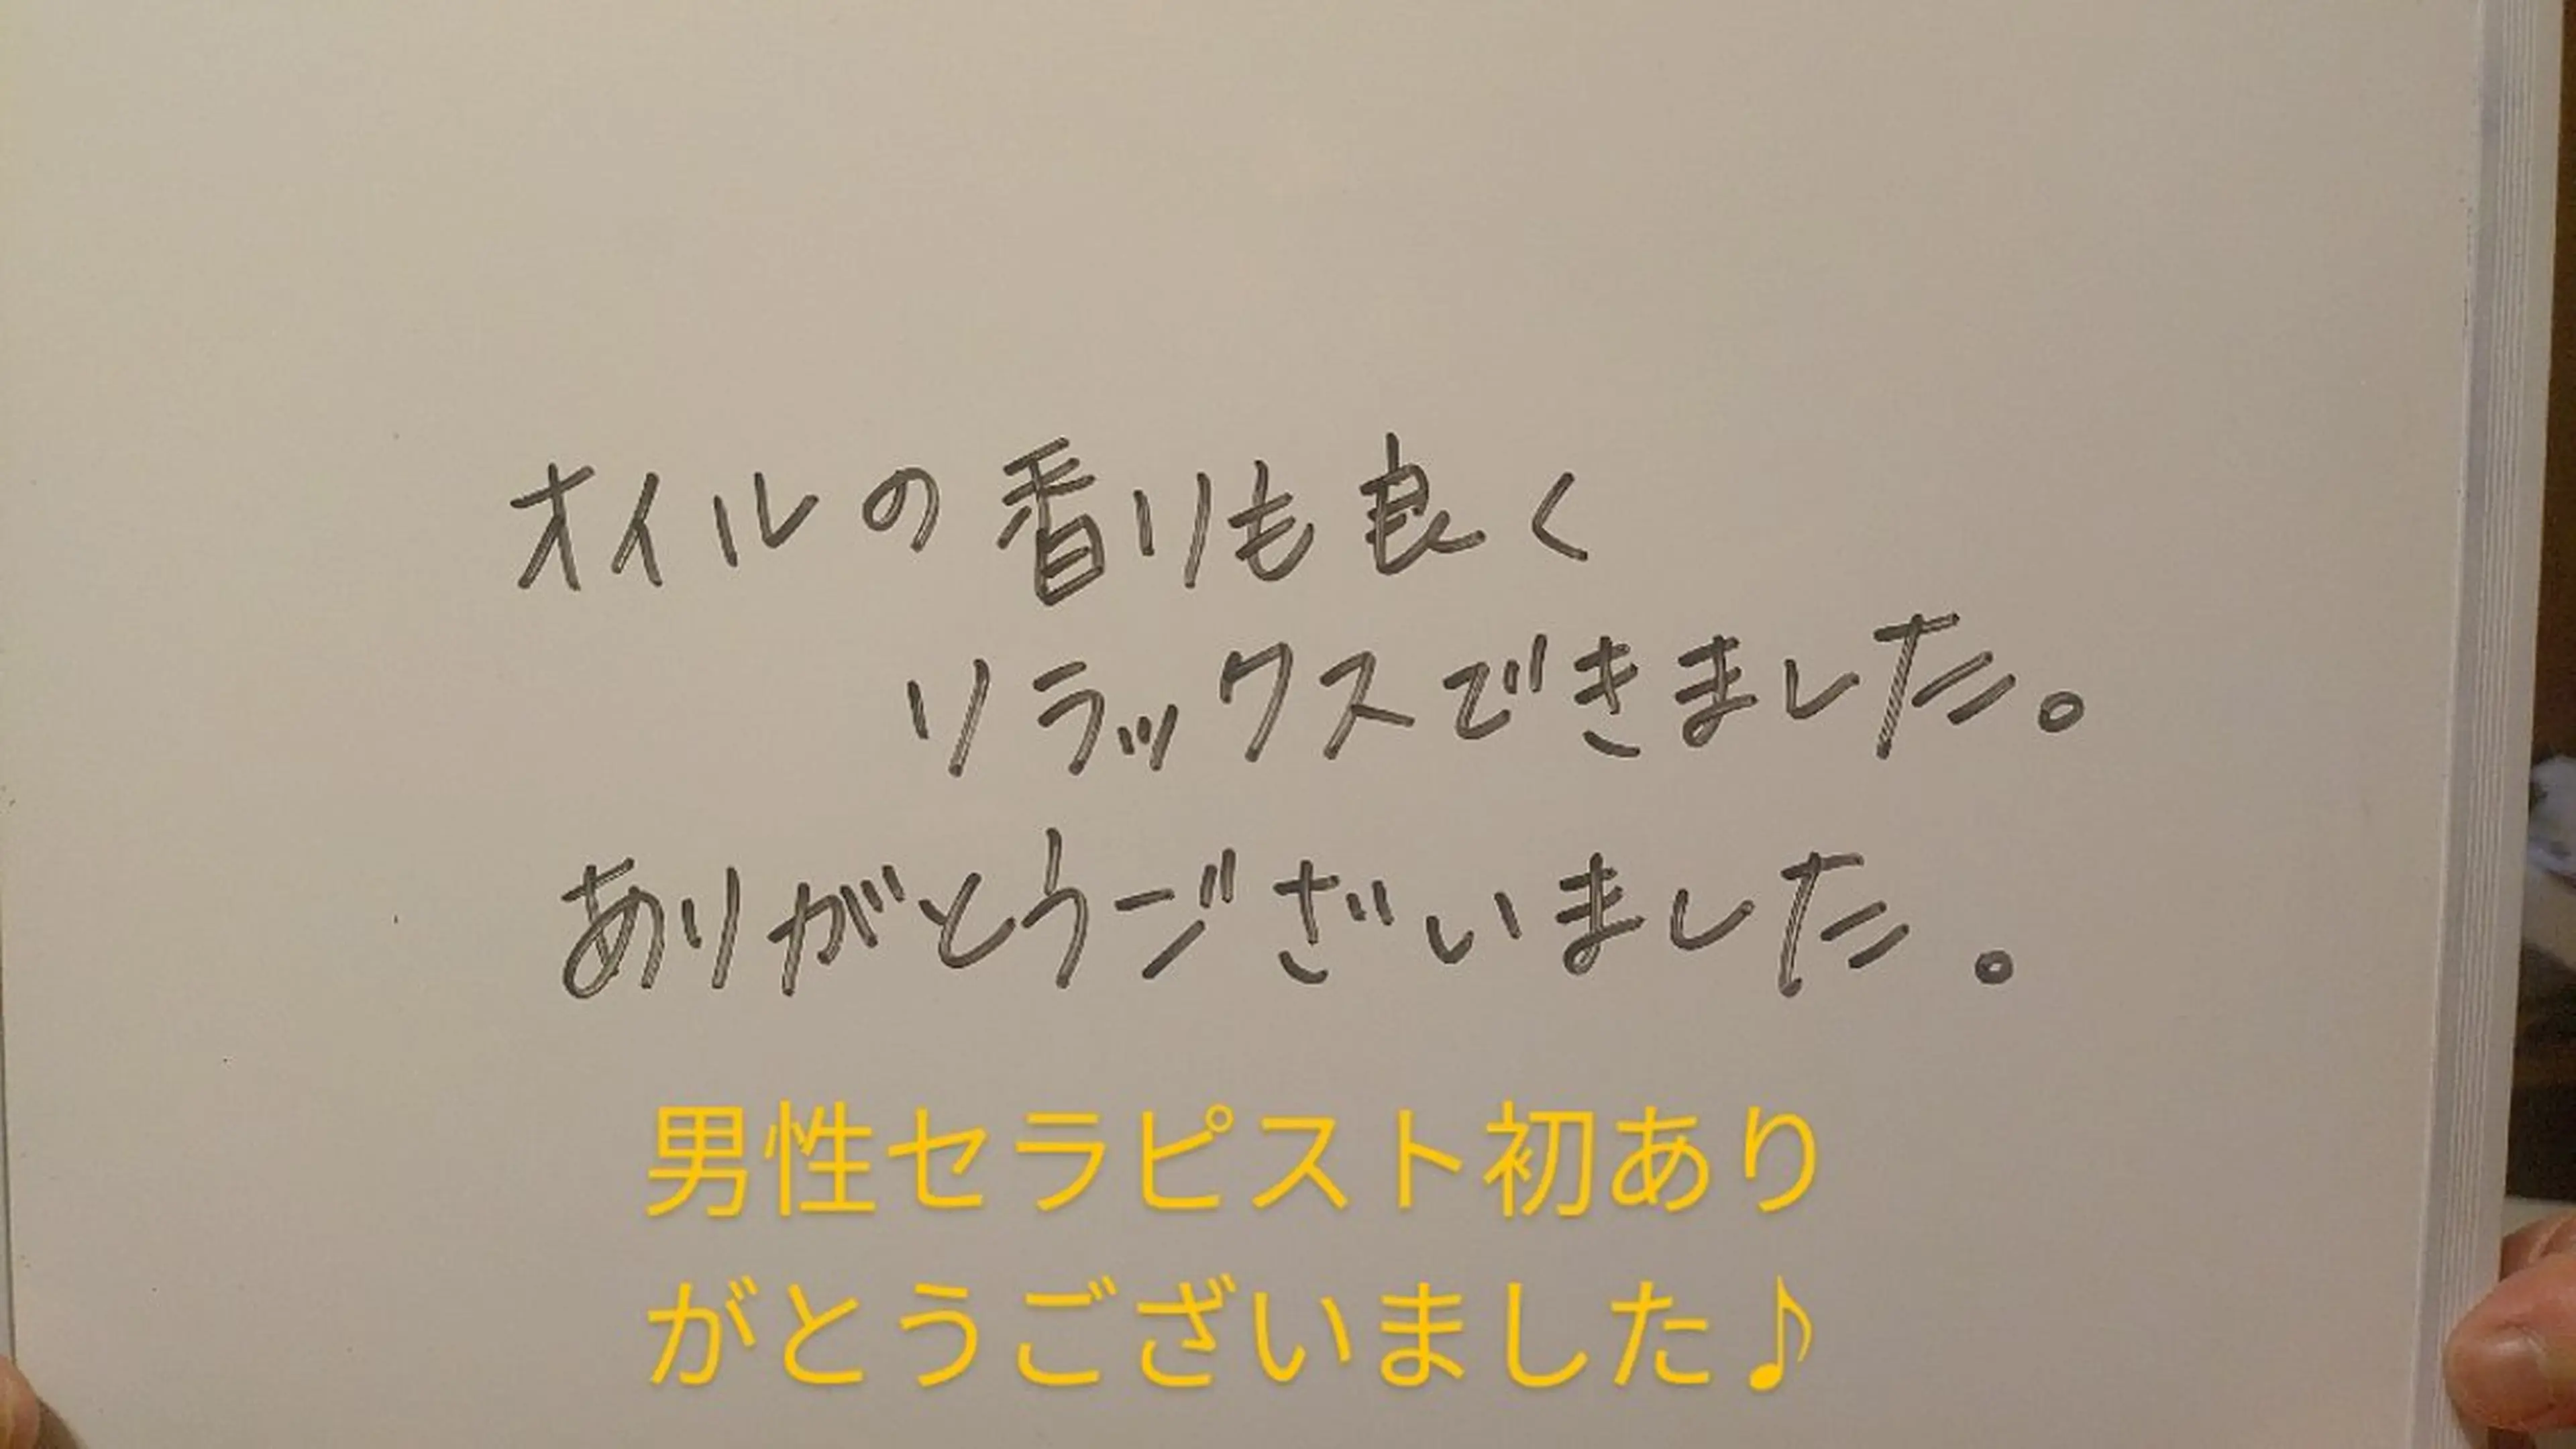 オイルの香りも良く
リラックスできました。
ありがとうございました。
男性セラピスト初あり
がとうございました♪